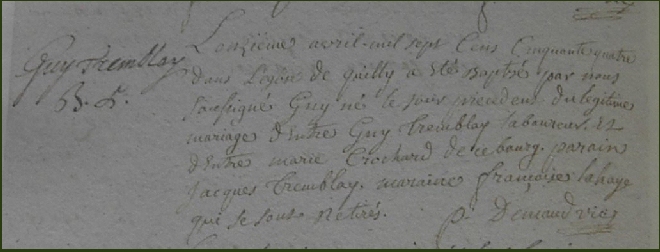 Guy tremblay
B. L.
Lonzième avril mil sept Cens Cinquante quatre
dans Legise de quilly a été Baptisé par nous
soussigné Guy né le jour precedent du legitime
mariage d'Entre Guy tremblay laboureur Et
d'Entre marie Crochard de ce bourg. parain
Jacques tremblay. maraine françoise lahaye
qui se sont retirés. Demaud vic